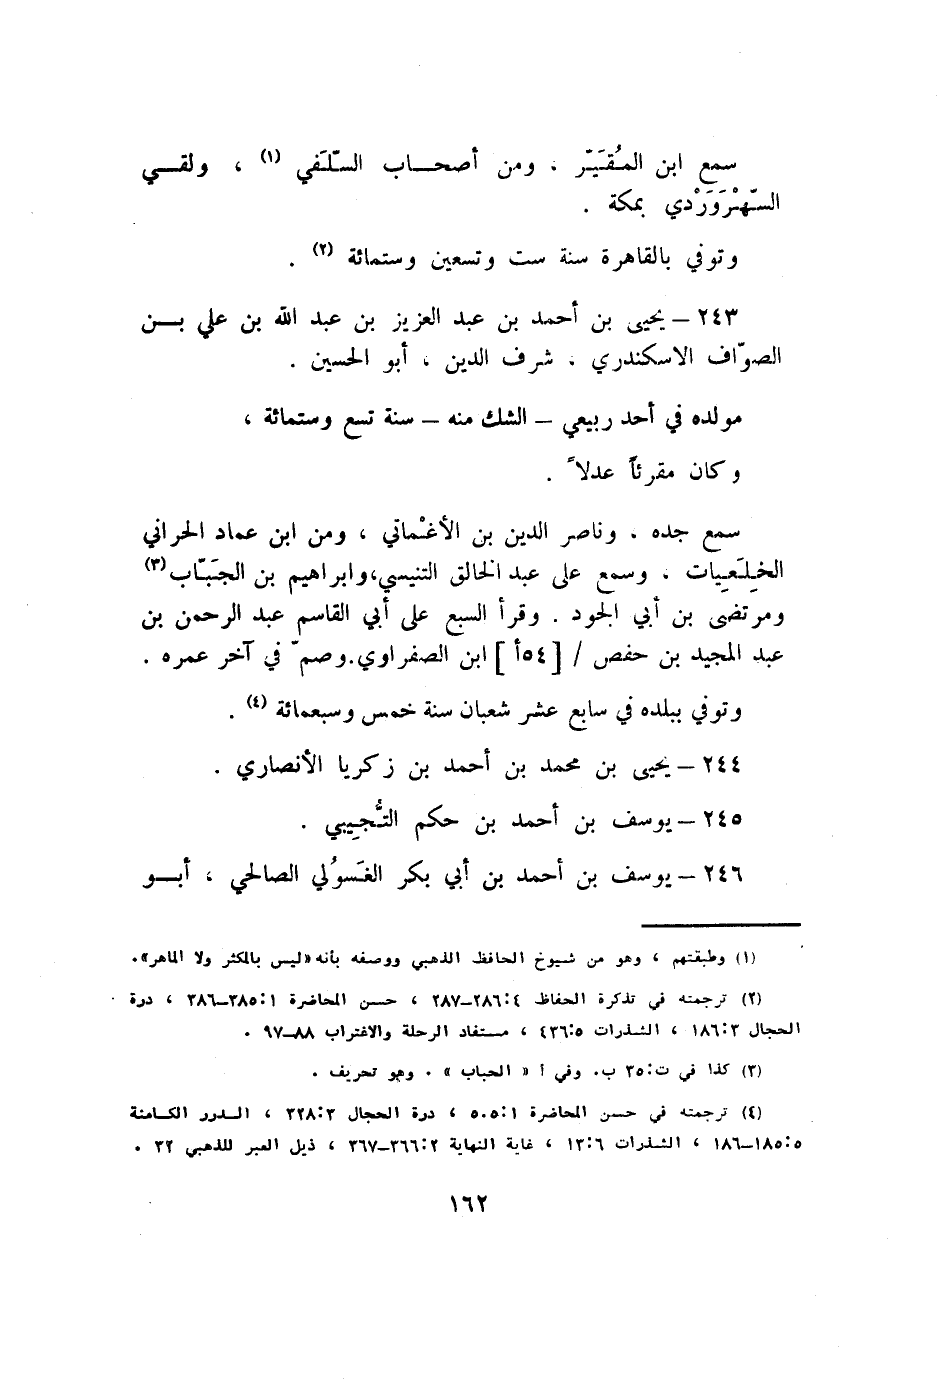 سمع ابن المُقَيَّر ، ومن أصحـــاب السِّلَفي (١) ، ولقـــي
السّهْرَوَرْدي بمكة .
وتوفي بالقاهرة سنة ست وتسعين وستمائة (٢) .
٢٤٣ – يحيى بن أحمد بن عبد العزيز بن عبد الله بن علي بـــن
الصوّاف الاسكندري ، شرف الدين ، أبو الحسين .
مولده في أحد ربيعي – الشك منه – سنة تسع وستمائة ،
وكان مقرئاً عدلاً .
سمع جده ، وناصر الدين بن الأغْماتي ، ومن ابن عماد الحراني
الخِلَعِيات ، وسمع على عبد الخالق التنيسي، وابراهيم بن الجَبّاب (٣)
ومرتضى بن أبي الجود . وقرأ السبع على أبي القاسم عبد الرحمن بن
عبد المجيد بن حفص / [ ٥٤أ ] ابن الصفراوي. وصمّ في آخر عمره .
وتوفي ببلده في سابع عشر شعبان سنة خمس وسبعمائة (٤) .
٢٤٤ – يحيى بن محمد بن أحمد بن زكريا الأنصاري .
٢٤٥ – يوسف بن أحمد بن حكم التُّجِيبي .
٢٤٦ – يوسف بن أحمد بن أبي بكر الغَسُولي الصالحي ، أبـــو
(١) وطبقتهم ، وهو من شيوخ الحافظ الذهبي ووصفه بأنه «ليس بالمكثر ولا الماهر».
(٢) ترجمته في تذكرة الحفاظ ٤:٢٨٦–٢٨٧ ، حسن المحاضرة ١:٣٨٥–٣٨٦ ، درة
الحجال ٣:١٨٦ ، الشذرات ٥:٤٣٦ ، مستفاد الرحلة والاغتراب ٨٨–٩٧ .
(٣) كذا في ت:٣٥ ب. وفي أ « الحباب » . وهو تحريف .
(٤) ترجمته في حسن المحاضرة ١:٥٠٥ ، درة الحجال ٣:٣٢٨ ، الـدرر الكـامنة
٥:١٨٥–١٨٦ ، الشذرات ٦:١٣ ، غاية النهاية ٢:٣٦٦–٣٦٧ ، ذيل العبر للذهبي ٣٢ .
١٦٢